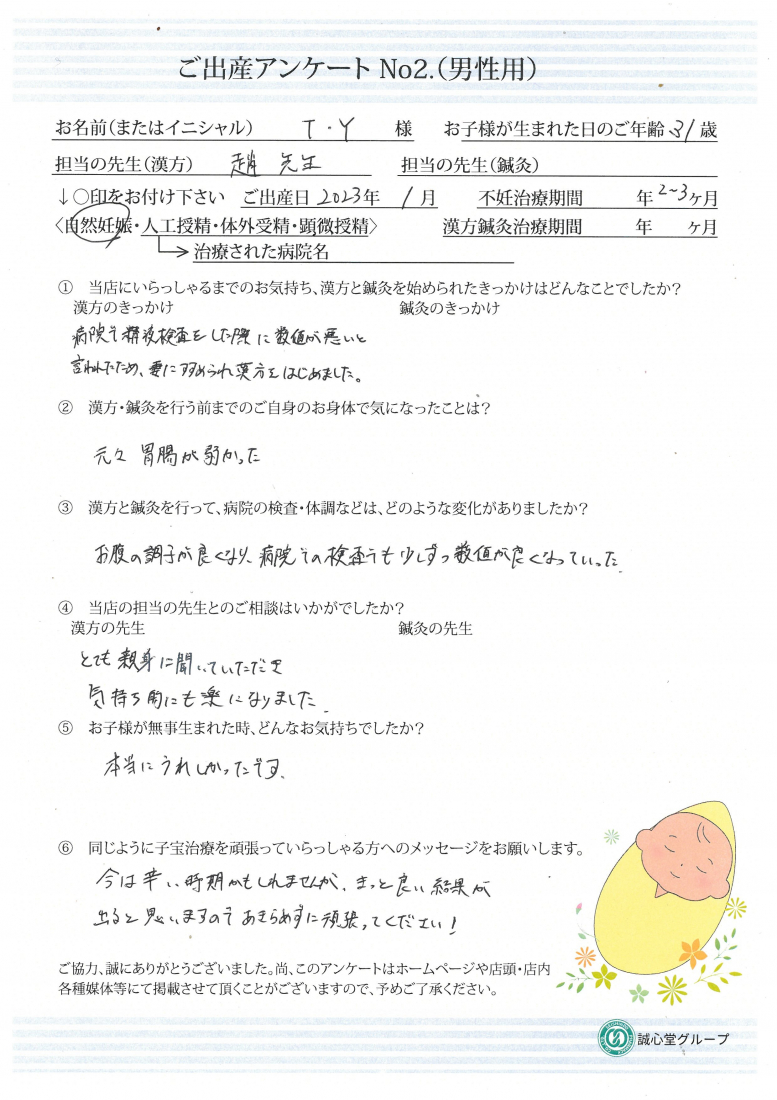 ご出産アンケート No2.(男性用)
お名前(またはイニシャル) T・Y 様 お子様が生まれた日のご年齢 31 歳
担当の先生(漢方) 趙 先生 担当の先生(鍼灸)
↓○印をお付け下さい ご出産日 2023年 1月 不妊治療期間 年 2~3ヶ月
〈自然妊娠・人工授精・体外受精・顕微授精〉 漢方鍼灸治療期間 年 ヶ月
治療された病院名
① 当店にいらっしゃるまでのお気持ち、漢方と鍼灸を始められたきっかけはどんなことでしたか?
漢方のきっかけ 鍼灸のきっかけ
病院で精液検査をした際に数値が悪いと
言われたため、妻に勧められ漢方をはじめました。
② 漢方・鍼灸を行う前までのご自身のお身体で気になったことは?
元々 胃腸が弱かった
③ 漢方と鍼灸を行って、病院の検査・体調などは、どのような変化がありましたか?
お腹の調子が良くなり、病院での検査でも少しずつ数値が良くなっていった。
④ 当店の担当の先生とのご相談はいかがでしたか?
漢方の先生 鍼灸の先生
とても親身に聞いていただき
気持ち的にも楽になりました。
⑤ お子様が無事生まれた時、どんなお気持ちでしたか?
本当にうれしかったです。
⑥ 同じように子宝治療を頑張っていらっしゃる方へのメッセージをお願いします。
今は辛い時期かもしれませんが、きっと良い結果が
出ると思いますのであきらめずに頑張ってください!
ご協力、誠にありがとうございました。尚、このアンケートはホームページや店頭・店内
各種媒体等にて掲載させて頂くことがございますので、予めご了承ください。
誠心堂グループ